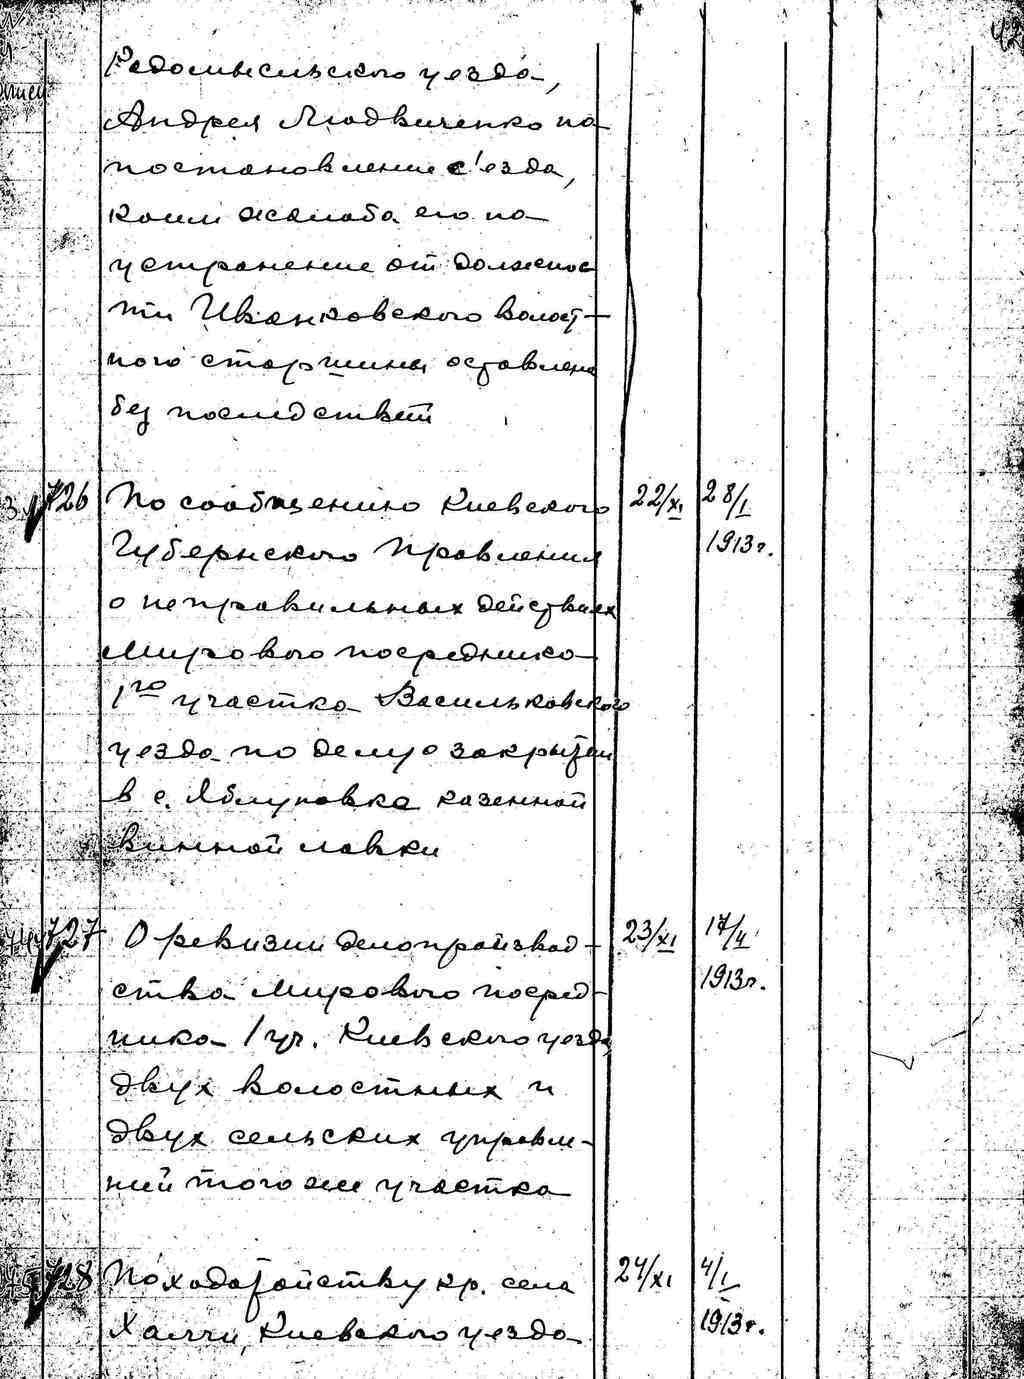 42
Радомысльского уезда,
Андрея Людвиченко на
постановление с'езда,
коим жалоба его на
устранение от должнос
ти Иванковского волост-
ного старшины оставлена
без последствий
726 По сообщению Киевского 22/XI 28/I
Губернского Правления 1913 г.
о неправильных действиях
Мирового посредника
1го участка Васильковского
уезда по делу о закрытии
в с. Яблуновка казенной
винной лавки
727 О ревизии делопроизвод- 23/XI 17/II
ства Мирового посред- 1913 г.
ника 1 уч. Киевского уезда,
двух волостных и
двух сельских управле-
ний того же участка
728 По ходатайству кр. села 24/XI 4/I
Халчи, Киевского уезда 1913 г.